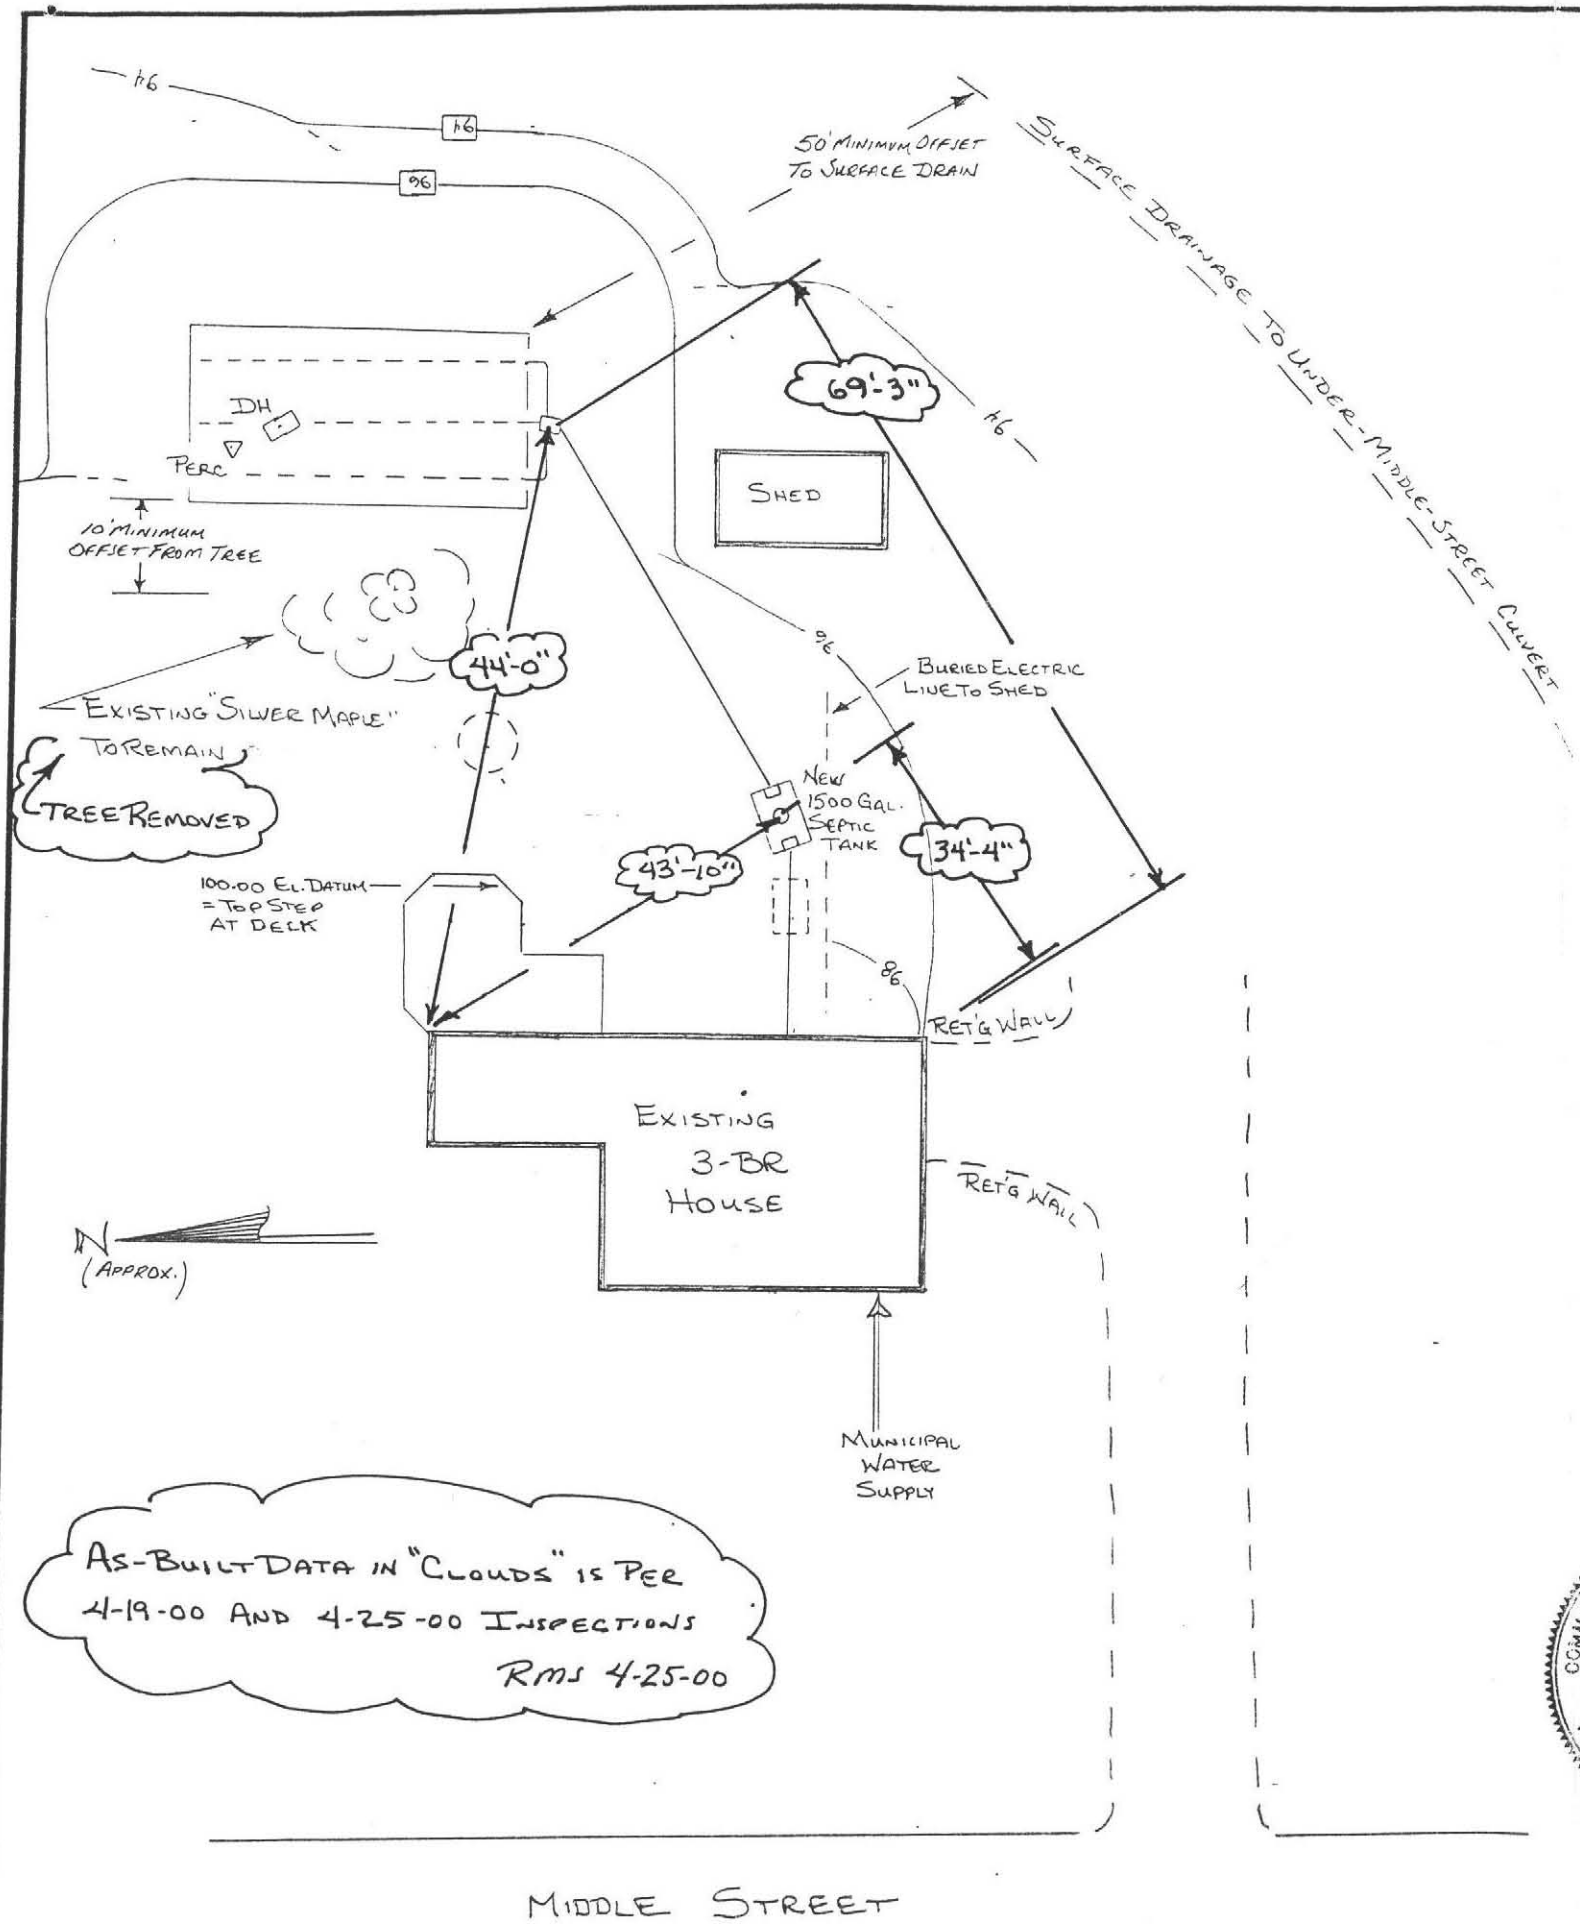 94
94
96
50' MINIMUM OFFSET
TO SURFACE DRAIN
SURFACE DRAINAGE TO UNDER-MIDDLE-STREET CULVERT
69'-3"
94
DH
PERC
SHED
10' MINIMUM
OFFSET FROM TREE
44'-0"
96
BURIED ELECTRIC
LINE TO SHED
EXISTING "SILVER MAPLE"
TO REMAIN
TREE REMOVED
NEW
1500 GAL.
SEPTIC
TANK
43'-10"
34'-4"
100.00 EL. DATUM
= TOP STEP
AT DECK
98
RET'G WALL
EXISTING
3-BR
HOUSE
RET'G WALL
N
(APPROX.)
MUNICIPAL
WATER
SUPPLY
AS-BUILT DATA IN "CLOUDS" IS PER
4-19-00 AND 4-25-00 INSPECTIONS
RMS 4-25-00
MIDDLE STREET